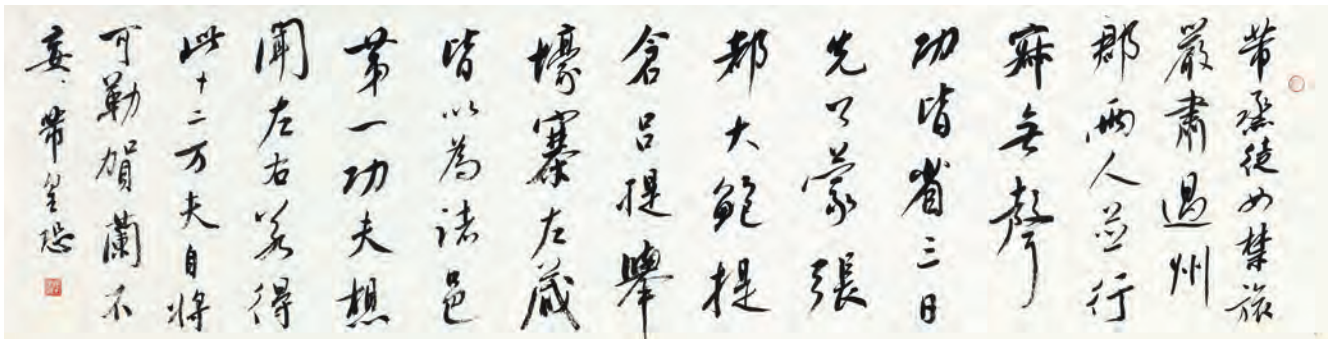 芾烝徒如禁旅
嚴肅過州
郡兩人並行
寂無聲
功皆省三日
先了蒙張
都大鮑提
倉呂提舉
壕寨左藏
皆以為諸邑
第一功夫想
聞左右若得
此十二万夫自將
可勒賀蘭不
妄芾皇恐